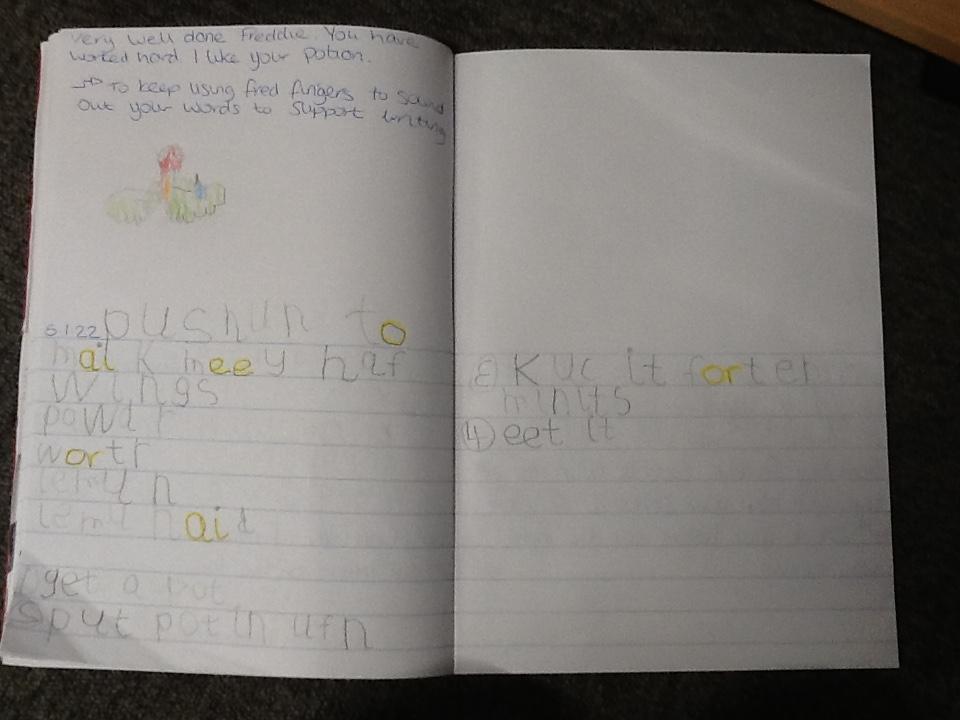 Very well done Freddie. You have
worked hard I like your potion.
→ To keep using fred fingers to sound
out your words to support writing
5.1.22 pushun to
maik meey haf
Wings
powdr
wortr
lemun
lemunaid
get a pot
put pot in ufn
3 KUC it forter
minits
4 eet it